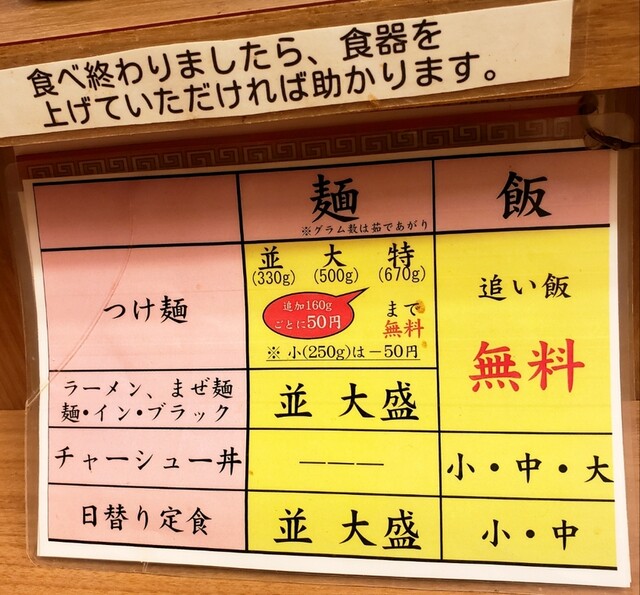 食べ終わりましたら、食器を
上げていただければ助かります。
麺
※グラム数は茹であがり
飯
つけ麺
並 大 特
(330g) (500g) (670g)
追加160g
ごとに50円
まで
無料
※ 小(250g)は－50円
追い飯
無料
ラーメン、まぜ麺
麺・イン・ブラック
並 大盛
チャーシュー丼
———
小・中・大
日替り定食
並 大盛
小・中